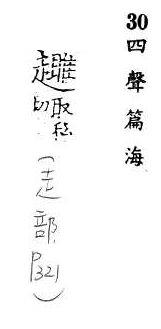 30 四聲篇海
取私
切
(走部
P321)